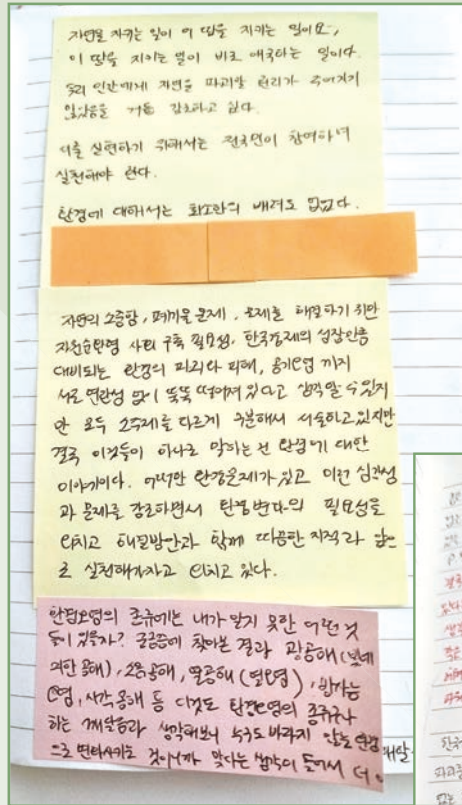 자연을 지키는 일이 이 땅을 지키는 일이요,
이 땅을 지키는 일이 바로 애국하는 일이다.
우리 인간에게 자연을 파괴할 권리가 주어지지
않았음을 거듭 강조하고 있다.
이를 실현하기 위해서는 전국민이 참여하며
실천해야 한다.
환경에 대해서는 최소한의 배려도 없었다.
자연의 소중함, 폐기물 문제, 문제를 해결하기 위한
자원순환형 사회 구축 필요성, 한국경제의 성장만큼
대비되는 환경의 파괴와 피해, 공기오염 까지
서로 연관성 없이 뚝뚝 떨어져 있다고 생각할 수 있지
만 모두 소주제를 다르게 구분해서 서술하고 있지만
결국 이것들이 하나로 말하는 건 환경에 대한
이야기이다. 어떠한 환경문제가 있고 이런 심각성
과 문제를 강조하면서 환경변화의 필요성을
외치고 해결방안과 함께 따끔한 지적과 앞으
로 실천해가자고 외치고 있다.
환경오염의 종류에는 내가 알지 못한 어떤 것
들이 있을까? 궁금증에 찾아본 결과 광공해(빛에
의한 공해), 소음공해, 열공해(열오염), 방사능
오염, 시각공해 등 이것도 환경오염의 종류구나
하는 깨달음과 생각해보니 누구도 바라지 않는 환경
으로 변화시키는 것이니까 맞다는 생각이 들어서 더